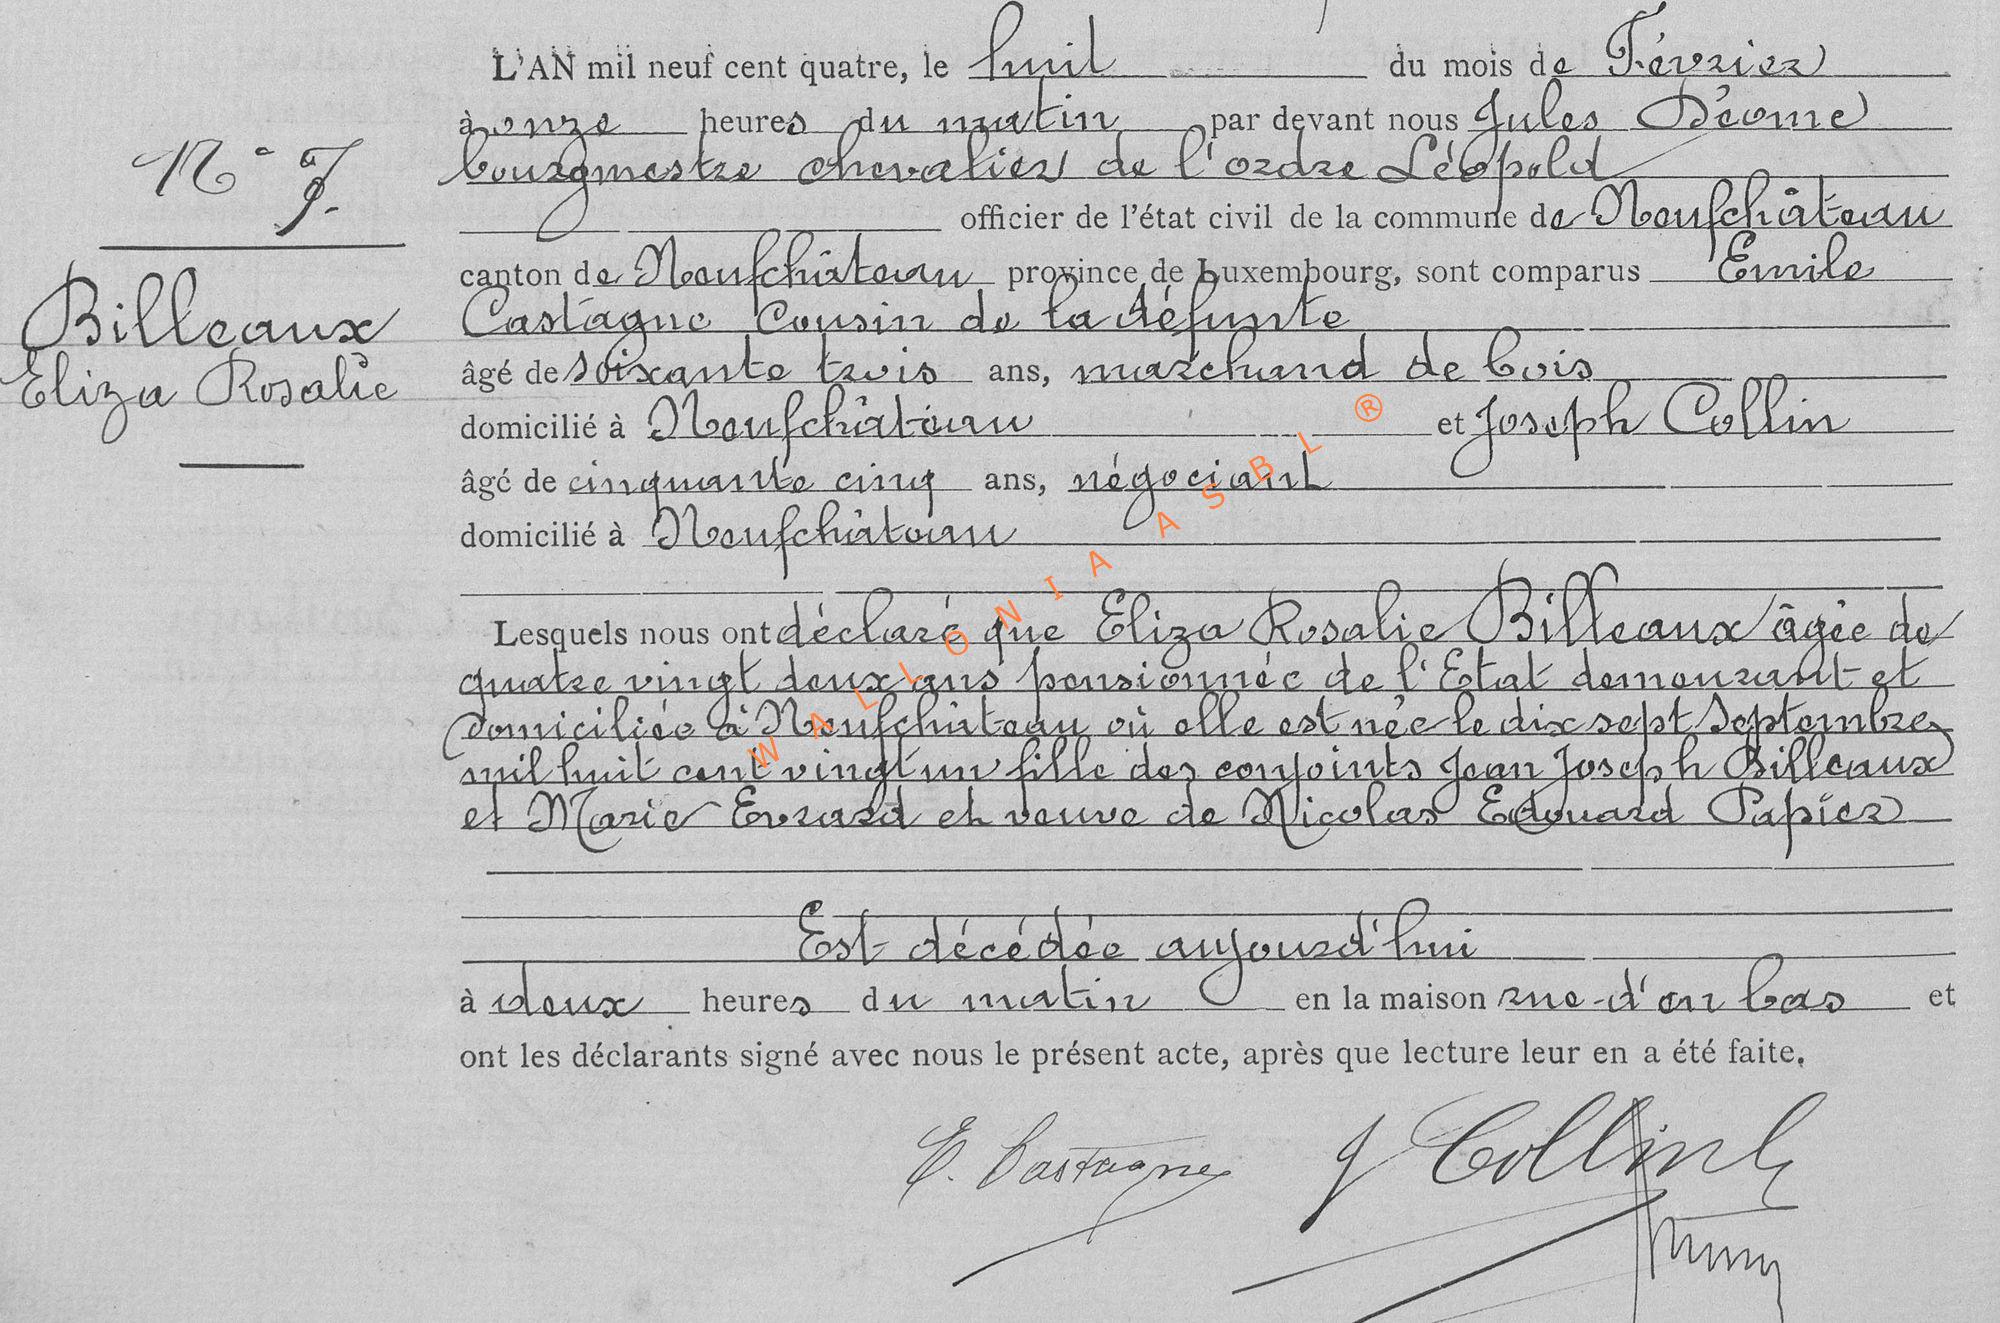 L'AN mil neuf cent quatre, le huit du mois de Février
à onze heures du matin par devant nous Jules Déome
bourgmestre chevalier de l'ordre Léopold
officier de l'état civil de la commune de Neufchâteau
canton de Neufchâteau province de Luxembourg, sont comparus Emile
Castagne Cousin de la défunte
âgé de soixante trois ans, marchand de bois
domicilié à Neufchâteau et Joseph Collin
âgé de cinquante cinq ans, négociant
domicilié à Neufchâteau
Lesquels nous ont déclaré que Eliza Rosalie Billeaux âgée de
quatre vingt deux ans pensionnée de l'Etat demeurant et
domiciliée à Neufchâteau où elle est née le dix sept Septembre
mil huit cent vingt un fille des conjoints Jean Joseph Billeaux
et Marie Evrard et veuve de Nicolas Edouard Papier
Est décédée aujourd'hui
à deux heures du matin en la maison rue d'en bas et
ont les déclarants signé avec nous le présent acte, après que lecture leur en a été faite.
E. Castagne J Collin
N° 7.
Billeaux
Eliza Rosalie
WALLONIA ASBL ®